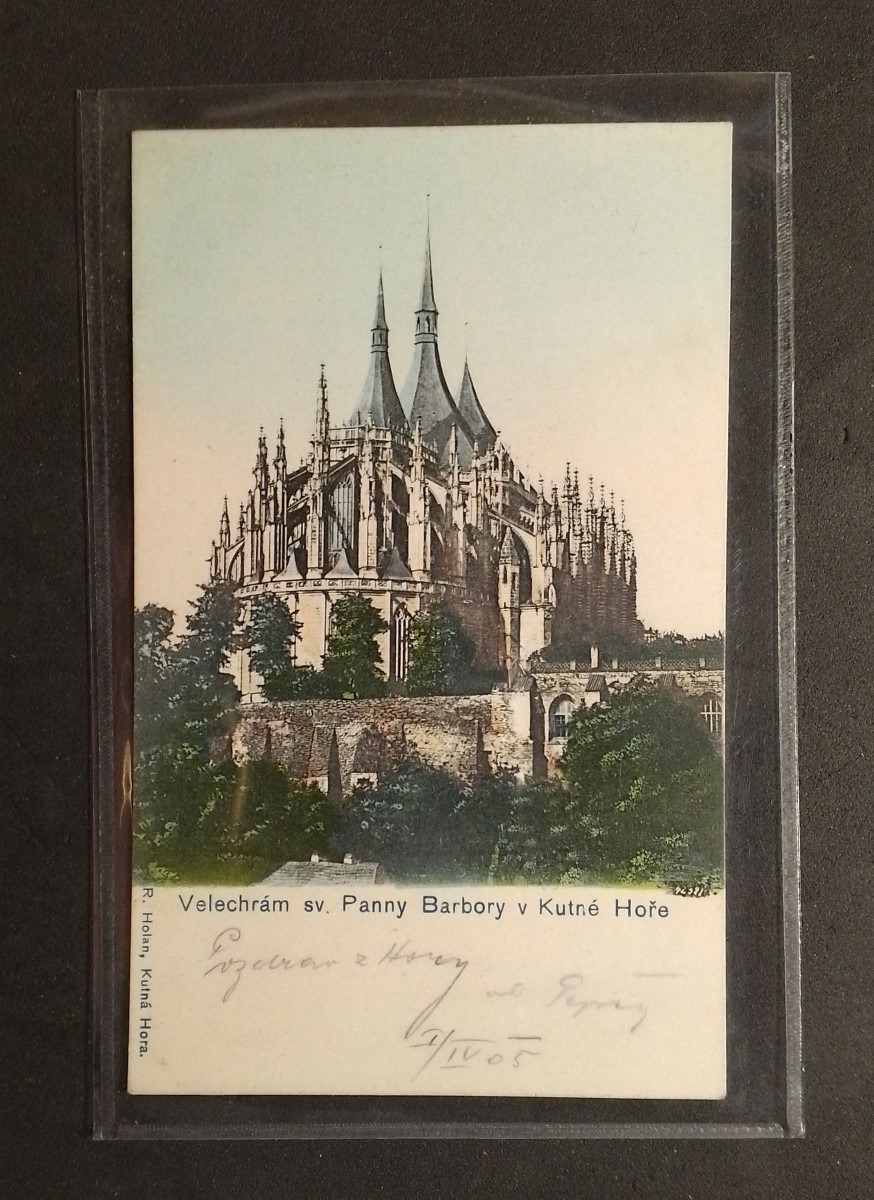 Velechrám sv. Panny Barbory v Kutné Hoře
R. Holan, Kutná Hora.
Pozdrav z Hory
od
I/IV 05